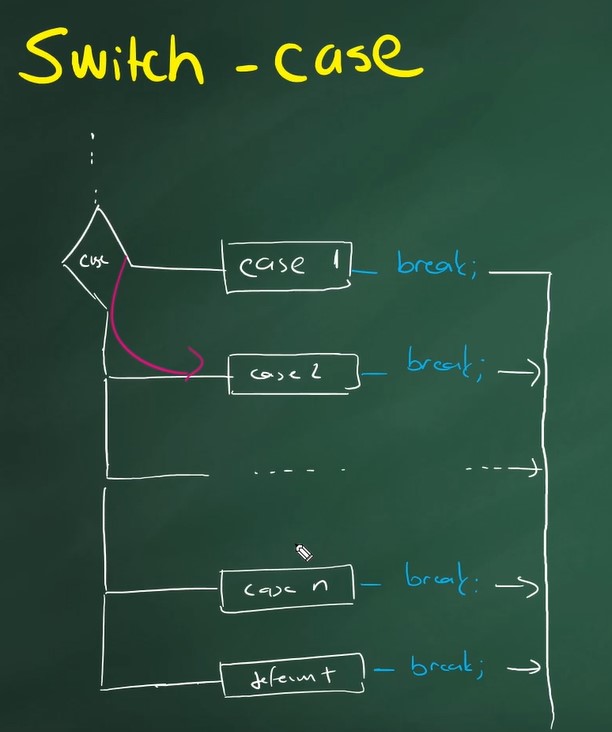 Switch - case
case
case 1 break;
case 2 break;
case n break;
default break;